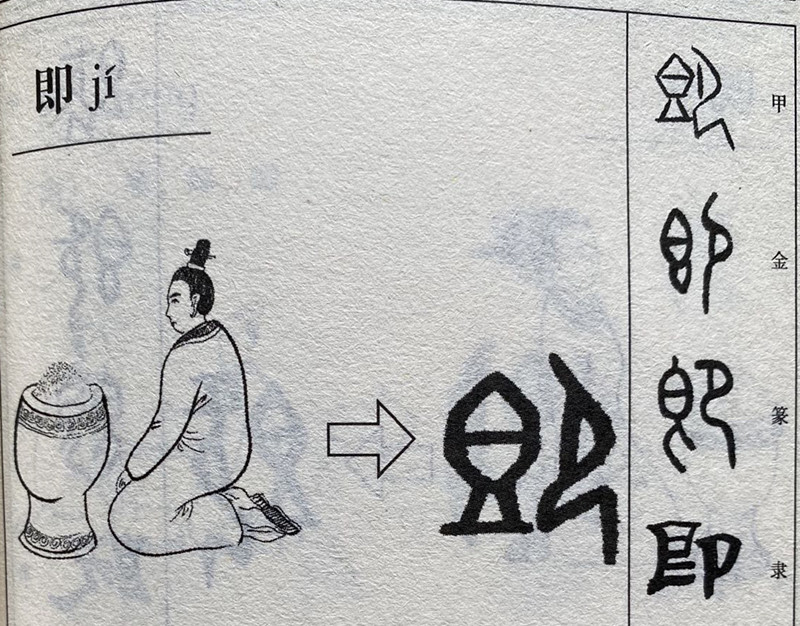 即 jí
甲
金
篆
隶